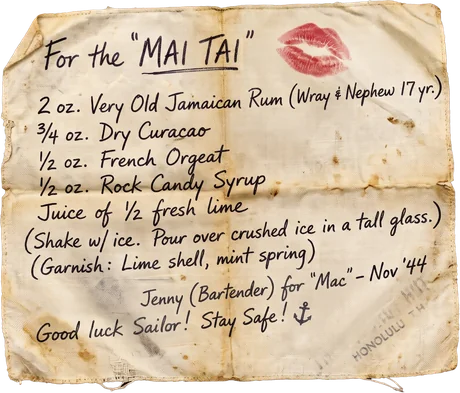 For the "MAI TAI"
2 oz. Very Old Jamaican Rum (Wray & Nephew 17 yr.)
3/4 oz. Dry Curacao
1/2 oz. French Orgeat
1/2 oz. Rock Candy Syrup
Juice of 1/2 fresh lime
(Shake w/ ice. Pour over crushed ice in a tall glass.)
(Garnish: Lime shell, mint spring)
Jenny (Bartender) for "Mac" – Nov '44
Good luck Sailor! Stay Safe!
HONOLULU